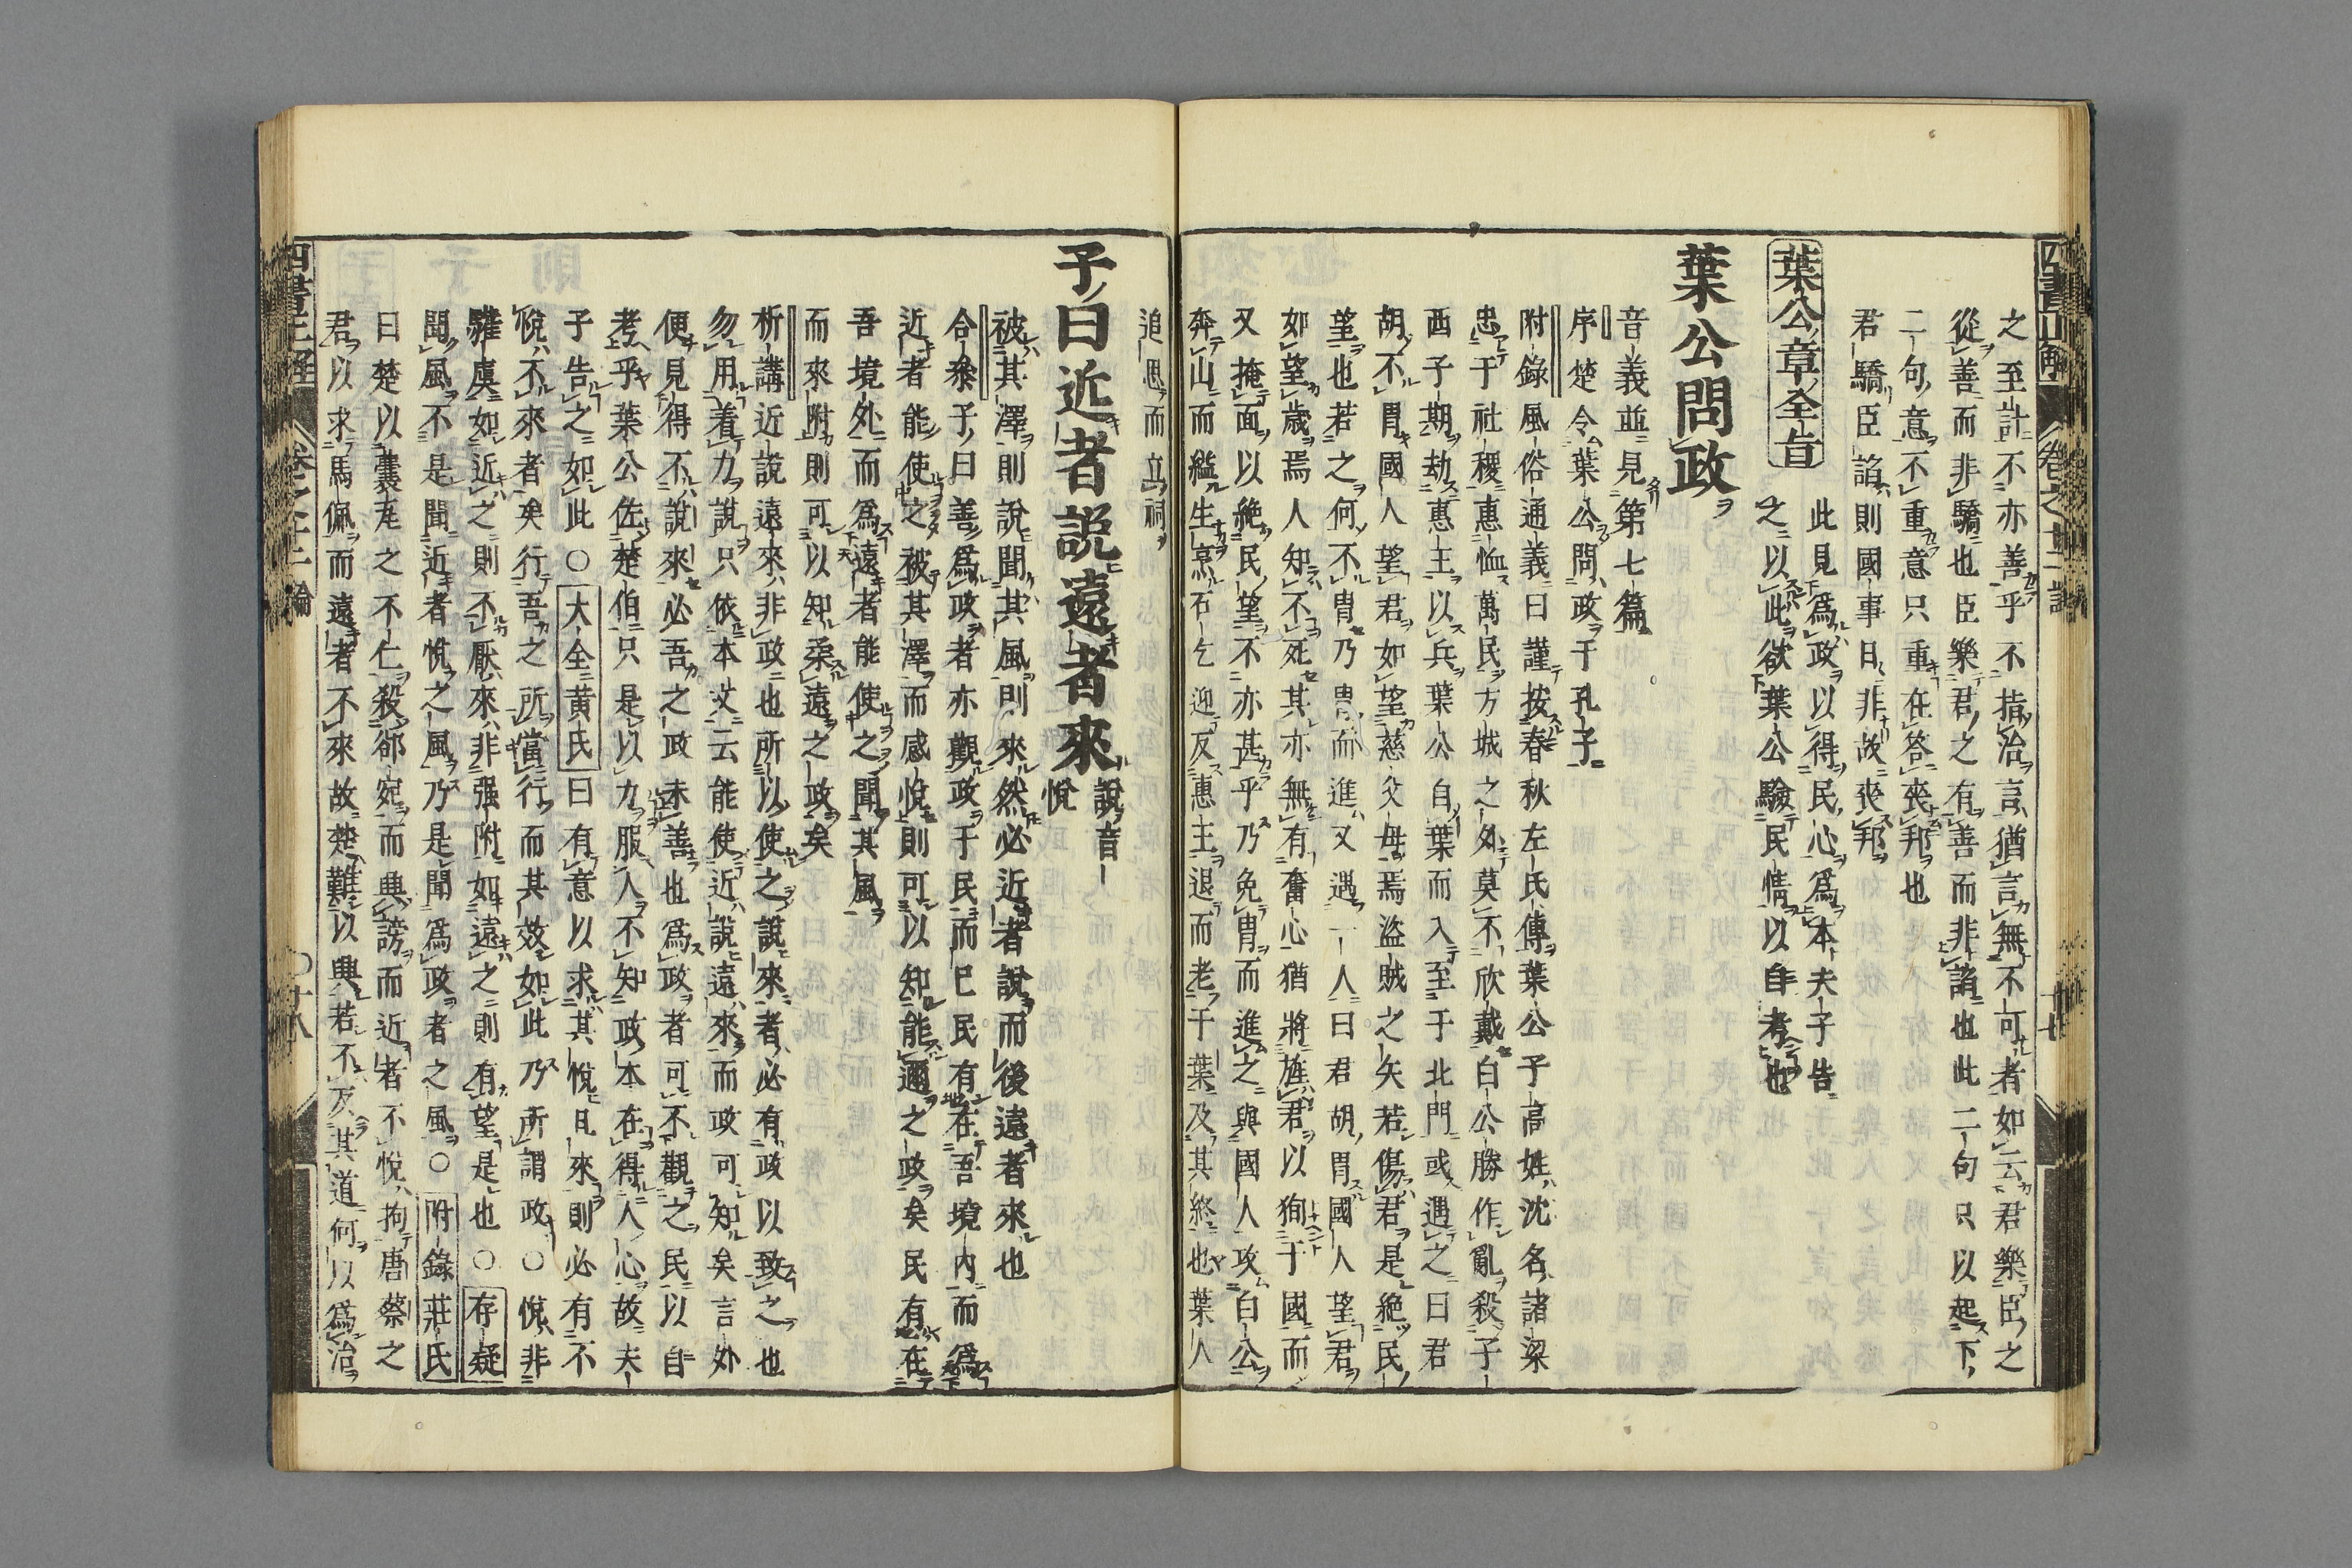 之至計不亦善乎不指治言猶言無不可者如云君樂臣之
從善而非驕也臣樂君之有善而非諂也此二句只以起下
二句意不重意只重在答喪邦也
君驕臣諂則國事日非故喪邦
葉公章全旨
此見爲政以得民心爲本夫子告
之以此欲葉公驗民情以自考也
葉公問政
音義並見第七篇
序楚令葉公問政于孔子
附錄風俗通義曰謹按春秋左氏傳葉公子高姓沈名諸梁
忠于社稷惠恤萬民方城之外莫不欣戴白公勝作亂殺子
西子期劫惠王以兵葉公自葉而入至于北門或遇之曰君
胡不胄國人望君如望慈父母焉盜賊之矢若傷君是絶民
望也若之何不胄乃胄而進又遇一人曰君胡胄國人望君
如望歲焉人知不死其亦無有奮心猶將旌君以狥于國而
又掩面以絶民望不亦甚乎乃免胄而進之與國人攻白公
奔山而縊生烹石乞迎反惠王退而老于葉及其終也葉人
追思而立祠
子曰近者說遠者來
說音悅
被其澤則說聞其風則來然必近者說而後遠者來也
合參子曰善爲政者亦觀政于民而已民有在吾境內而爲
近者能使之被其澤而感悅則可以知能邇之政矣民有在
吾境外而爲遠者能使之聞其風
而來附則可以知柔遠之政矣
析講近說遠來非政也所以使之說來者必有政以致之也
勿用着力說只依本文云能使近說遠來而政可知矣言外
便見得不說來必吾之政未善也爲政者可不觀之民以自
考乎葉公佐楚伯只是以力服人不知政本在得人心故夫
子告之如此○大全黃氏曰有意以求其悅且來則必有不
悅不來者矣行吾之所當行而其效如此乃所謂政○悅非
驩虞如近之則不厭來非强附如遠之則有望是也○存疑
聞風不是聞近者悅之風乃是聞爲政者之風○附錄莊氏
曰楚以囊瓦之不仁殺郤宛而興謗而近者不悅拘唐蔡之
君以求馬佩而遠者不來故楚難以興若不反其道何以爲治
四書正解
卷之十二 論
十八